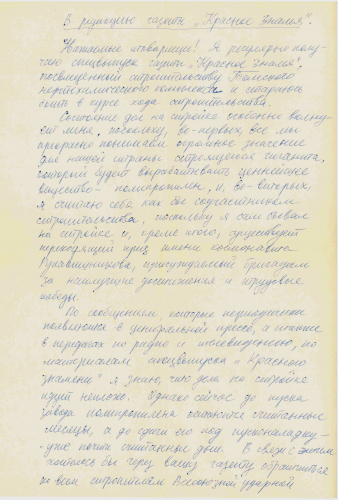 В редакцию газеты "Красное Знамя".
Уважаемые товарищи! Я регулярно полу-
чаю спецвыпуск газеты "Красное Знамя",
посвященный строительству Томского
нефтехимического комплекса и стараюсь
быть в курсе хода строительства.
Состояние дел на стройке особенно волну-
ет меня, поскольку, во-первых, все мы
прекрасно понимаем огромное значение
для нашей страны строящегося гиганта,
который будет вырабатывать ценнейшее
вещество - полипропилен, и, во-вторых,
я считаю себя как бы соучастником
строительства, поскольку я сам бывал
на стройке и, кроме того, существует
переходящий приз имени космонавта
Рукавишникова, присуждаемый бригадам
за наилучшие достижения и трудовые
победы.
По сообщениям, которые периодически
появляются в центральной прессе, а также
в передачах по радио и телевидению, по
материалам спецвыпуска "Красного
Знамени" я знаю, что дела на стройке
идут неплохо. Однако сейчас до пуска
завода полипропилена остаются считанные
месяцы, а до сдачи его под пусконаладку -
- уже почти считанные дни. В связи с этим
хотелось бы через вашу газету обратиться
ко всем строителям Всесоюзной ударной